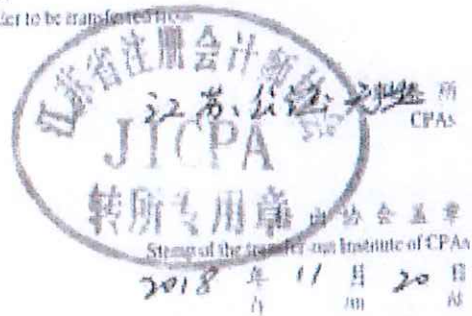 to be transferred from
江苏省注册会计师协会
江苏公证 所
CPAs
JICPA
转所专用章
出协会盖章
Stamp of the transfer-out Institute of CPAs
2018 年 11 月 20 日
/y /m /d